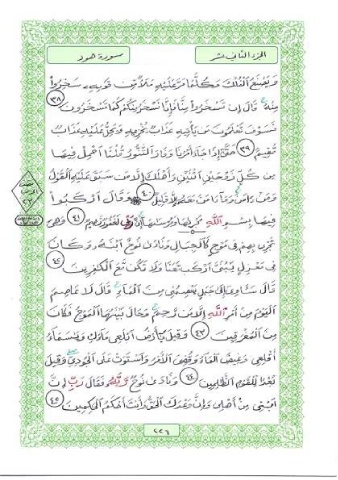 الجزء الثاني عشر
سورة هود
وَيَصْنَعُ الْفُلْكَ وَكُلَّمَا مَرَّ عَلَيْهِ مَلَأٌ مِنْ قَوْمِهِ سَخِرُوا
مِنْهُ قَالَ إِنْ تَسْخَرُوا مِنَّا فَإِنَّا نَسْخَرُ مِنْكُمْ كَمَا تَسْخَرُونَ ٣٨
فَسَوْفَ تَعْلَمُونَ مَنْ يَأْتِيهِ عَذَابٌ يُخْزِيهِ وَيَحِلُّ عَلَيْهِ عَذَابٌ
مُقِيمٌ ٣٩ حَتَّىٰ إِذَا جَاءَ أَمْرُنَا وَفَارَ التَّنُّورُ قُلْنَا احْمِلْ فِيهَا
مِنْ كُلٍّ زَوْجَيْنِ اثْنَيْنِ وَأَهْلَكَ إِلَّا مَنْ سَبَقَ عَلَيْهِ الْقَوْلُ
وَمَنْ آمَنَ وَمَا آمَنَ مَعَهُ إِلَّا قَلِيلٌ ٤٠ وَقَالَ ارْكَبُوا
فِيهَا بِسْمِ اللَّهِ مَجْرَاهَا وَمُرْسَاهَا إِنَّ رَبِّي لَغَفُورٌ رَحِيمٌ ٤١ وَهِيَ
تَجْرِي بِهِمْ فِي مَوْجٍ كَالْجِبَالِ وَنَادَىٰ نُوحٌ ابْنَهُ وَكَانَ
فِي مَعْزِلٍ يَا بُنَيَّ ارْكَبْ مَعَنَا وَلَا تَكُنْ مَعَ الْكَافِرِينَ ٤٢
قَالَ سَآوِي إِلَىٰ جَبَلٍ يَعْصِمُنِي مِنَ الْمَاءِ قَالَ لَا عَاصِمَ
الْيَوْمَ مِنْ أَمْرِ اللَّهِ إِلَّا مَنْ رَحِمَ وَحَالَ بَيْنَهُمَا الْمَوْجُ فَكَانَ
مِنَ الْمُغْرَقِينَ ٤٣ وَقِيلَ يَا أَرْضُ ابْلَعِي مَاءَكِ وَيَا سَمَاءُ
أَقْلِعِي وَغِيضَ الْمَاءُ وَقُضِيَ الْأَمْرُ وَاسْتَوَتْ عَلَى الْجُودِيِّ وَقِيلَ
بُعْدًا لِلْقَوْمِ الظَّالِمِينَ ٤٤ وَنَادَىٰ نُوحٌ رَبَّهُ فَقَالَ رَبِّ إِنَّ
ابْنِي مِنْ أَهْلِي وَإِنَّ وَعْدَكَ الْحَقُّ وَأَنْتَ أَحْكَمُ الْحَاكِمِينَ ٤٥
٢٢٦